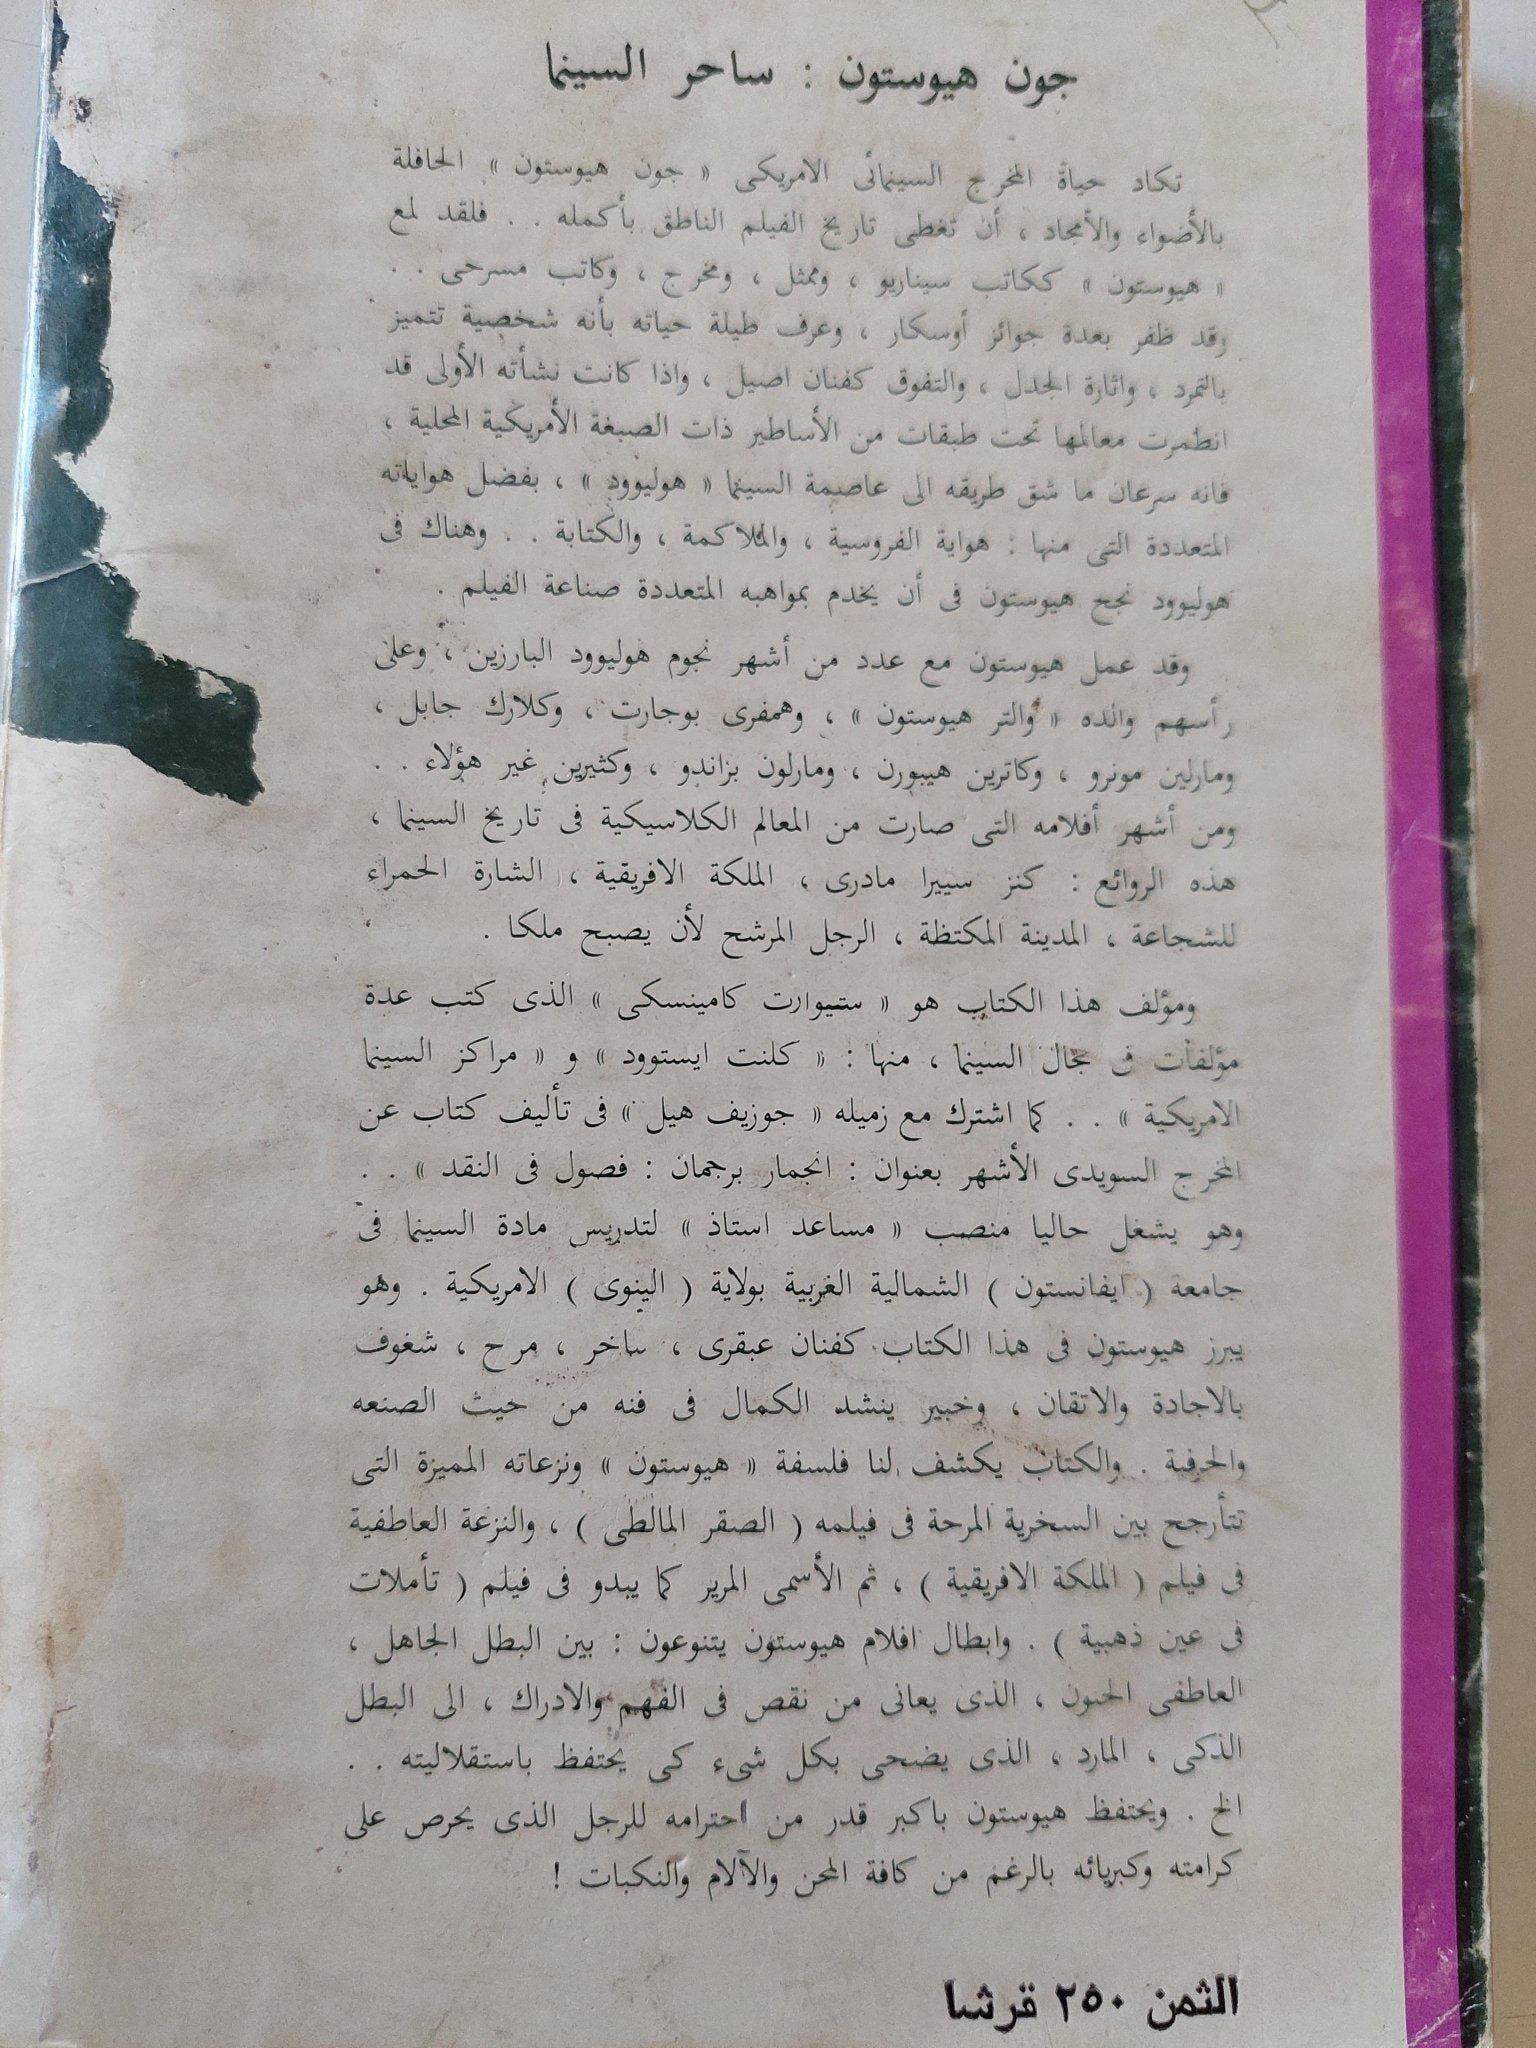 جون هيوستون : ساحر السينما
تكاد حياة المخرج السينمائى الامريكى « جون هيوستون » الحافلة
بالأضواء والأمجاد ، أن تغطى تاريخ الفيلم الناطق بأكمله . . فلقد لمع
« هيوستون » ككاتب سيناريو ، وممثل ، ومخرج ، وكاتب مسرحى . .
وقد ظفر بعدة جوائز أوسكار ، وعرف طيلة حياته بأنه شخصية تتميز
بالتمرد ، واثارة الجدل ، والتفوق كفنان اصيل ، واذا كانت نشأته الأولى قد
انطمرت معالمها تحت طبقات من الأساطير ذات الصبغة الأمريكية المحلية ،
فانه سرعان ما شق طريقه الى عاصمة السينما « هوليوود » ، بفضل هواياته
المتعددة التى منها : هواية الفروسية ، والملاكمة ، والكتابة . . وهناك فى
هوليوود نجح هيوستون فى أن يخدم بمواهبه المتعددة صناعة الفيلم .
وقد عمل هيوستون مع عدد من أشهر نجوم هوليوود البارزين ، وعلى
رأسهم والده « والتر هيوستون » ، وهمفرى بوجارت ، وكلارك جابل ،
ومارلين مونرو ، وكاترين هيبورن ، ومارلون براندو ، وكثيرين غير هؤلاء . .
ومن أشهر أفلامه التى صارت من المعالم الكلاسيكية فى تاريخ السينما ،
هذه الروائع : كنز سييرا مادرى ، الملكة الافريقية ، الشارة الحمراء
للشجاعة ، المدينة المكتظة ، الرجل المرشح لأن يصبح ملكا .
ومؤلف هذا الكتاب هو « ستيوارت كامينسكى » الذى كتب عدة
مؤلفات فى مجال السينما ، منها : « كلنت ايستوود » و « مراكز السينما
الامريكية » . . كما اشترك مع زميله « جوزيف هيل » فى تأليف كتاب عن
المخرج السويدى الأشهر بعنوان : انجمار برجمان : فصول فى النقد » . .
وهو يشغل حاليا منصب « مساعد استاذ » لتدريس مادة السينما فى
جامعة ( ايفانستون ) الشمالية الغربية بولاية ( الينوى ) الامريكية . وهو
يبرز هيوستون فى هذا الكتاب كفنان عبقرى ، ساخر ، مرح ، شغوف
بالاجادة والاتقان ، وخبير ينشد الكمال فى فنه من حيث الصنعه
والحرفية . والكتاب يكشف لنا فلسفة « هيوستون » ونزعاته المميزة التى
تتأرجح بين السخرية المرحة فى فيلمه ( الصقر المالطى ) ، والنزعة العاطفية
فى فيلم ( الملكة الافريقية ) ، ثم الأسمى المرير كما يبدو فى فيلم ( تأملات
فى عين ذهبية ) . وابطال افلام هيوستون يتنوعون : بين البطل الجاهل ،
العاطفى الحنون ، الذى يعانى من نقص فى الفهم والادراك ، الى البطل
الذكى ، المارد ، الذى يضحى بكل شىء كى يحتفظ باستقلاليته . .
الخ . ويحتفظ هيوستون باكبر قدر من احترامه للرجل الذى يحرص على
كرامته وكبريائه بالرغم من كافة المحن والآلام والنكبات !
الثمن ٢٥٠ قرشا